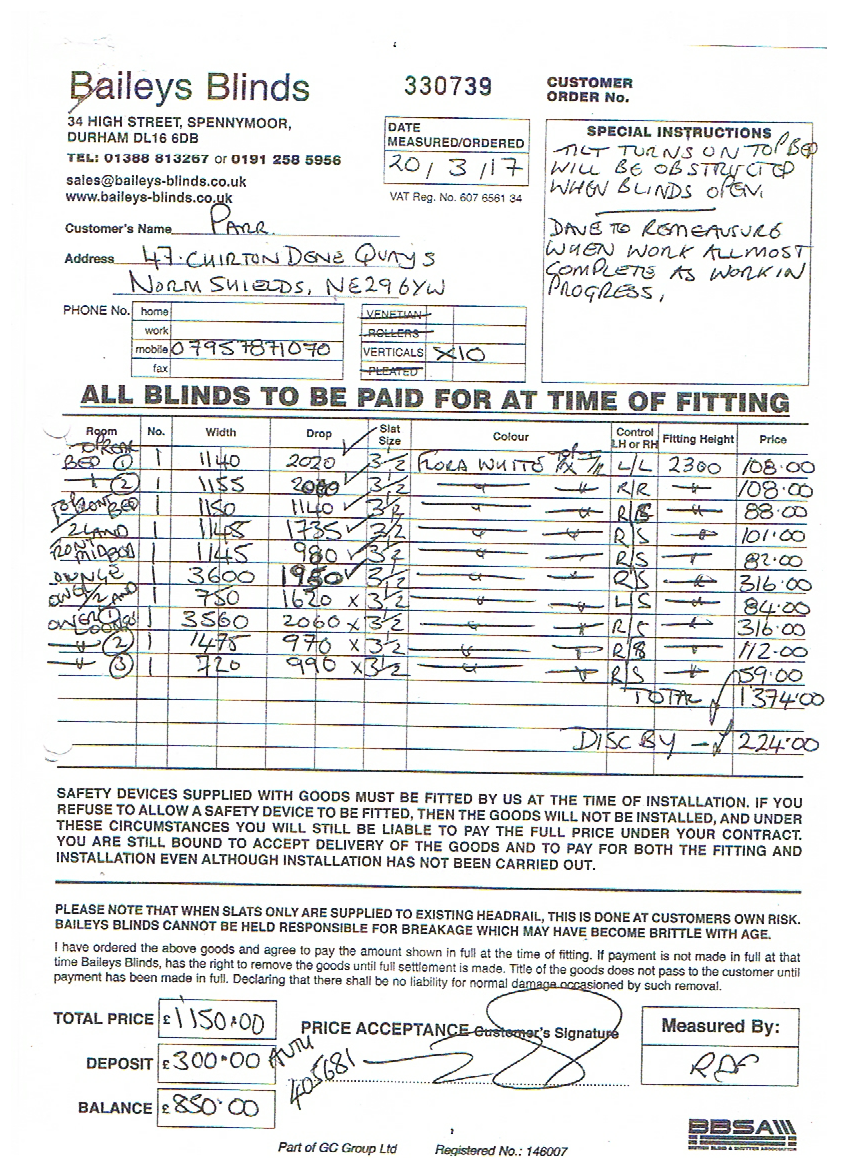 Baileys Blinds
330739
CUSTOMER
ORDER No.
34 HIGH STREET, SPENNYMOOR,
DURHAM DL16 6DB
TEL: 01388 813267 or 0191 258 5956
sales@baileys-blinds.co.uk
www.baileys-blinds.co.uk
DATE
MEASURED/ORDERED
20/3/17
VAT Reg. No. 607 6561 34
SPECIAL INSTRUCTIONS
TILT TURNS ON TOP BED
WILL BE OBSTRUCTED
WHEN BLINDS OPEN.
DAVE TO REMEASURE
WHEN WORK ALLMOST
COMPLETE AS WORK IN
PROGRESS,
Customer's Name PARR
Address 47. CHIRTON DENE QUAYS
NORTH SHIELDS, NE29 6YW
PHONE No. home
work
mobile 07957871070
fax
VENETIAN
ROLLERS
VERTICALS X10
PLEATED
ALL BLINDS TO BE PAID FOR AT TIME OF FITTING
Room No. Width Drop Slat Size Colour Control LH or RH Fitting Height Price
BED ① 1 1140 2020 3½ FLORA WHITE L/L 2300 108.00
② 1 1155 3½ " " R/R " 108.00
TOP FRONT BED 1 1150 1140 3½ " " R/S " 88.00
1 1145 1735 3½ " " R/S " 101.00
FRONT MID BED 1 1145 980 3½ " " R/S " 82.00
1 3600 1950 3½ " " R/S " 316.00
1 750 1620 x 3½ " " L/S " 84.00
1 3560 2060 x 3½ " " R/S " 316.00
" ② 1 1475 970 x 3½ " " R/S " 112.00
" ③ 1 720 990 x 3½ " " R/S " 59.00
TOTAL 1374.00
DISC BY - 224.00
SAFETY DEVICES SUPPLIED WITH GOODS MUST BE FITTED BY US AT THE TIME OF INSTALLATION. IF YOU
REFUSE TO ALLOW A SAFETY DEVICE TO BE FITTED, THEN THE GOODS WILL NOT BE INSTALLED, AND UNDER
THESE CIRCUMSTANCES YOU WILL STILL BE LIABLE TO PAY THE FULL PRICE UNDER YOUR CONTRACT.
YOU ARE STILL BOUND TO ACCEPT DELIVERY OF THE GOODS AND TO PAY FOR BOTH THE FITTING AND
INSTALLATION EVEN ALTHOUGH INSTALLATION HAS NOT BEEN CARRIED OUT.
PLEASE NOTE THAT WHEN SLATS ONLY ARE SUPPLIED TO EXISTING HEADRAIL, THIS IS DONE AT CUSTOMERS OWN RISK.
BAILEYS BLINDS CANNOT BE HELD RESPONSIBLE FOR BREAKAGE WHICH MAY HAVE BECOME BRITTLE WITH AGE.
I have ordered the above goods and agree to pay the amount shown in full at the time of fitting. If payment is not made in full at that
time Baileys Blinds, has the right to remove the goods until full settlement is made. Title of the goods does not pass to the customer until
payment has been made in full. Declaring that there shall be no liability for normal damage occasioned by such removal.
TOTAL PRICE £1150.00
PRICE ACCEPTANCE Customer's Signature
Measured By:
DEPOSIT £300.00 AUTH
405681
BALANCE £850.00
BBSA
BRITISH BLIND & SHUTTER ASSOCIATION
Part of GC Group Ltd Registered No.: 146007